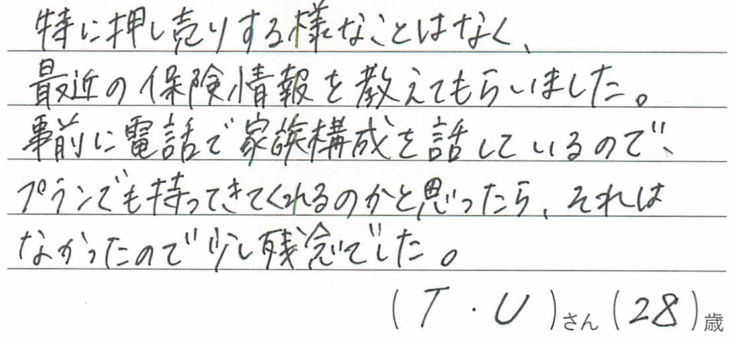 特に押し売りする様なことはなく、
最近の保険情報を教えてもらいました。
事前に電話で家族構成を話しているので、
プランでも持ってきてくれるのかと思ったら、それは
なかったので少し残念でした。
(T・U)さん(28)歳